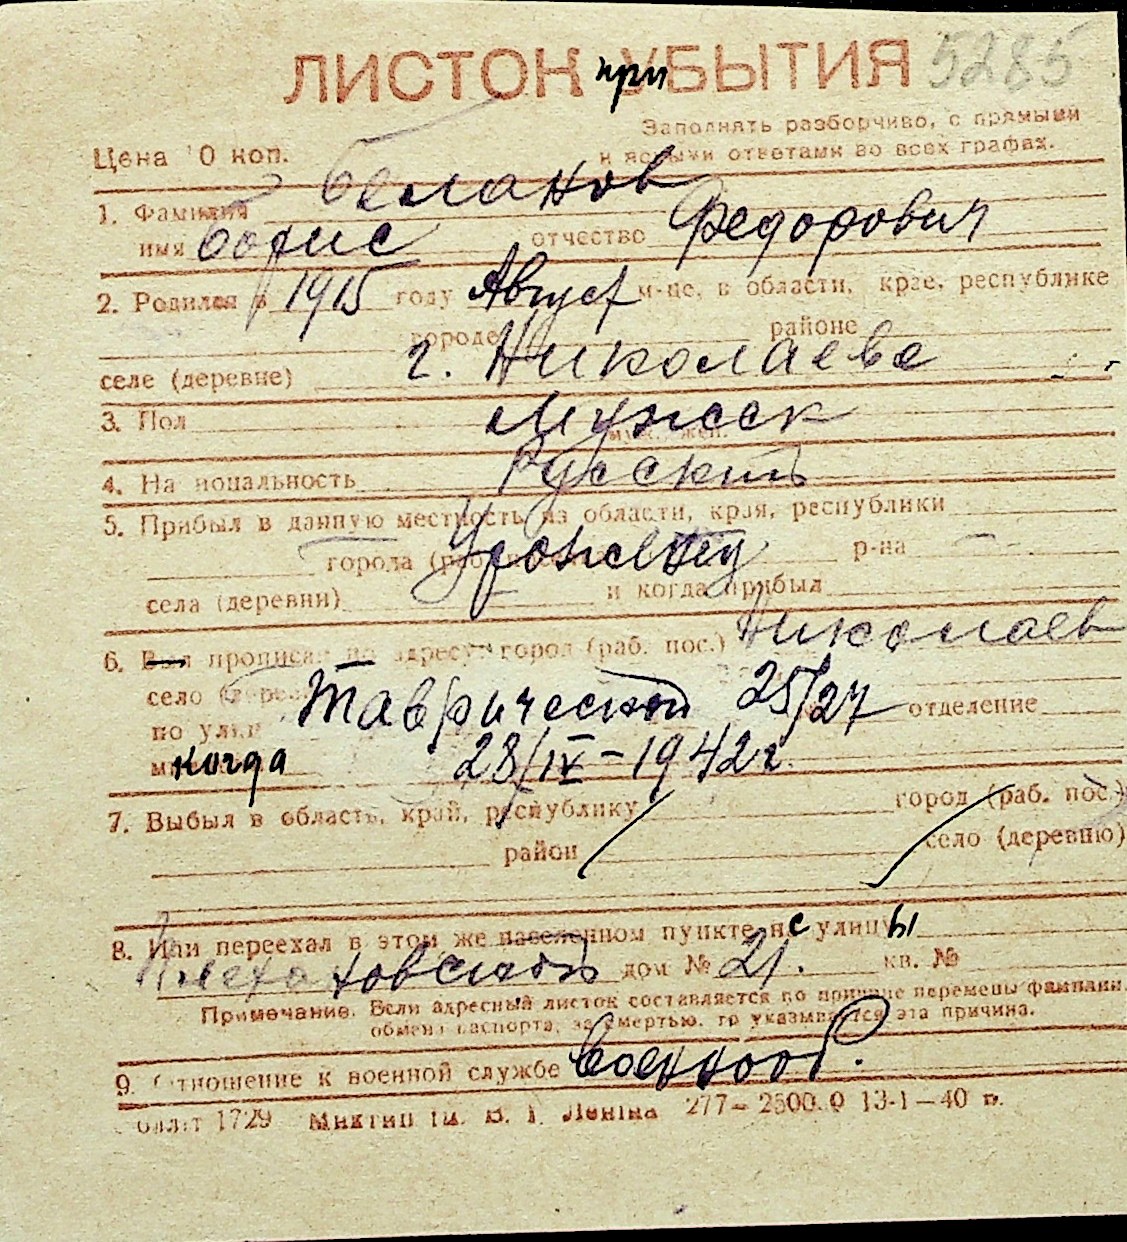 ЛИСТОК при УБЫТИЯ 5285
Заполнять разборчиво, с прямыми
Цена 10 коп. и ясными ответами во всех графах.
1. Фамилия Беланов
имя Борис отчество Федорович
2. Родился в 1915 году Август м-це, в области, крае, республике
городе районе
селе (деревне) г. Николаеве
3. Пол Мужск
муж. жен.
4. Национальность Русский
5. Прибыл в данную местность из области, края, республики
города Уроженец р-на
села (деревни) и когда прибыл
6. Был прописан по адресу: город (раб. пос.) Николаев
село
по улице Таврической 25/27 отделение
когда 28/IV-1942г.
7. Выбыл в область, край, республику город (раб. пос.)
район село (деревню)
8. Или переехал в этом же населенном пункте с улицы
Плехановской дом № 21. кв. №
Примечание. Если адресный листок составляется по причине перемены фамилии,
обмена паспорта, за смертью, то указывается эта причина.
9. Отношение к военной службе Военнооб.
1729 Миктип ім. В. І. Леніна 277—2500.0 13-1—40 г.